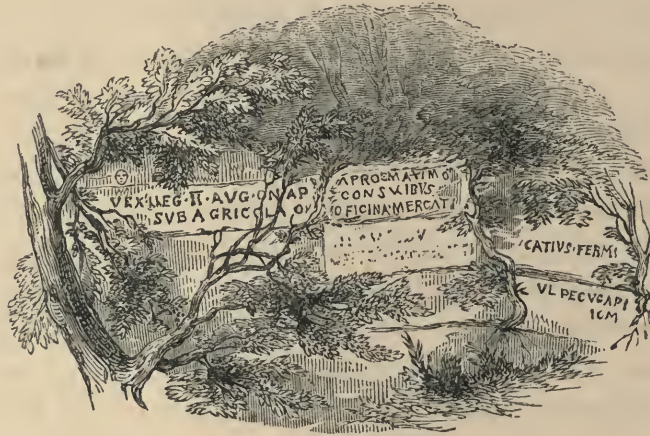 VEX·LLEG·II·AVG·ON AP
SVB AGRICOLA O
APROEMAXIMO
CONSVLIBVS
OFICINA·MERCATI
·CATIVS·FERMI
VL PECVGAPI
ICM